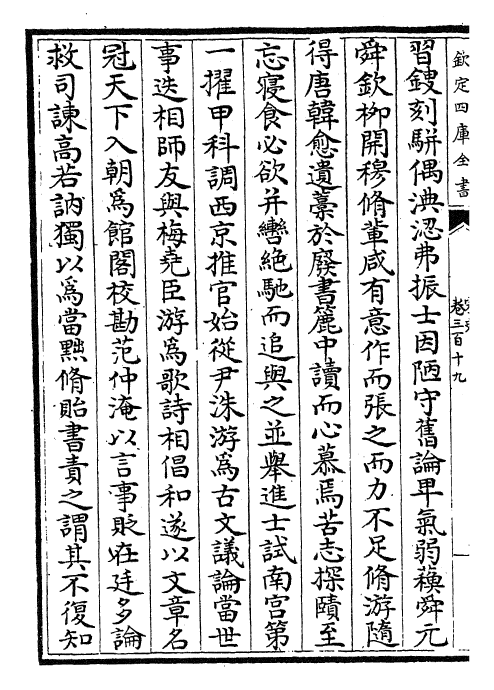 欽定四庫全書
宋史
卷三百十九
習鎪刻駢偶淟涊弗振士因陋守舊論卑氣弱蘇舜元
舜欽柳開穆脩輩咸有意作而張之而力不足脩游隨
得唐韓愈遺藁於廢書簏中讀而心慕焉苦志探賾至
忘寢食必欲并轡絶馳而追與之並舉進士試南宫第
一擢甲科調西京推官始從尹洙游為古文議論當世
事迭相師友與梅堯臣游為歌詩相倡和遂以文章名
冠天下入朝為館閣校勘范仲淹以言事貶在廷多論
救司諫高若訥獨以為當黜脩貽書責之謂其不復知